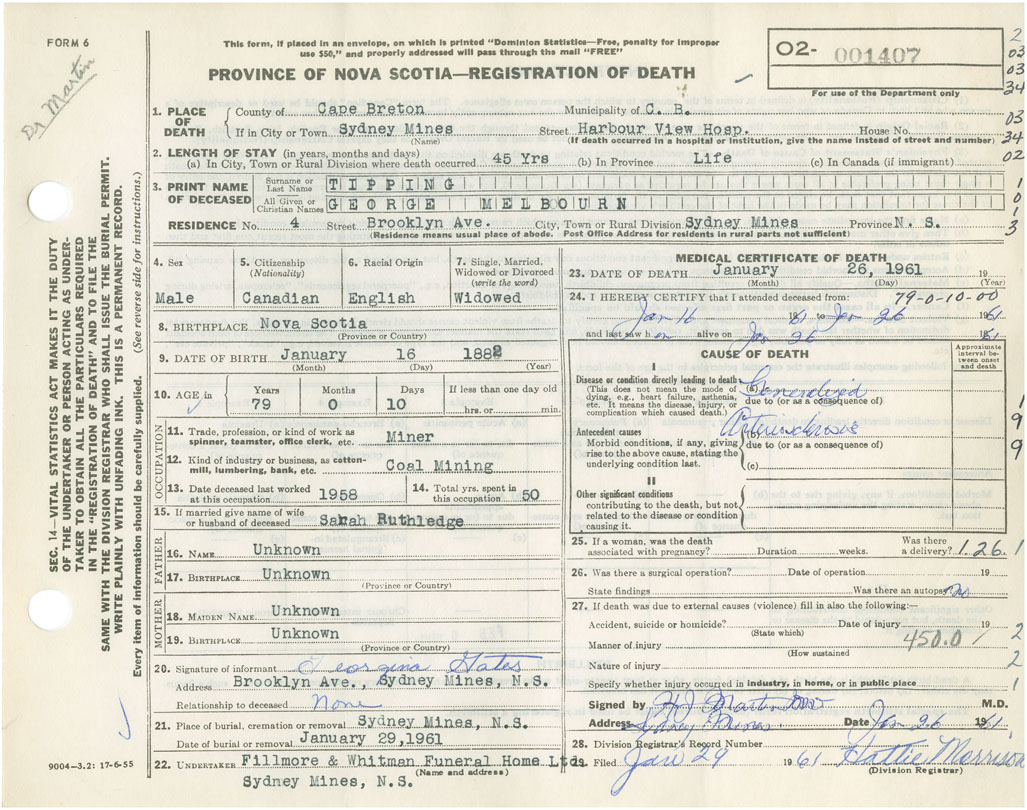 FORM 6
Dr Martin
This form, if placed in an envelope, on which is printed "Dominion Statistics—Free, penalty for improper
use $50," and properly addressed will pass through the mail "FREE"
PROVINCE OF NOVA SCOTIA—REGISTRATION OF DEATH
O2- 001407
For use of the Department only
2
03
03
34
03
34
02
1
0
1
3
1. PLACE OF DEATH
County of Cape Breton Municipality of C. B.
If in City or Town Sydney Mines Street Harbour View Hosp. House No.
(Name) (If death occurred in a hospital or institution, give the name instead of street and number)
2. LENGTH OF STAY (in years, months and days)
(a) In City, Town or Rural Division where death occurred 45 Yrs (b) In Province Life (c) In Canada (if immigrant)
3. PRINT NAME OF DECEASED
Surname or Last Name TIPPING
All Given or Christian Names GEORGE MELBOURN
RESIDENCE No. 4 Street Brooklyn Ave. City, Town or Rural Division Sydney Mines Province N. S.
(Residence means usual place of abode. Post Office Address for residents in rural parts not sufficient)
SEC. 14—VITAL STATISTICS ACT MAKES IT THE DUTY
OF THE UNDERTAKER OR PERSON ACTING AS UNDER-
TAKER TO OBTAIN ALL THE PARTICULARS REQUIRED
IN THE "REGISTRATION OF DEATH" AND TO FILE THE
SAME WITH THE DIVISION REGISTRAR WHO SHALL ISSUE THE BURIAL PERMIT.
WRITE PLAINLY WITH UNFADING INK. THIS IS A PERMANENT RECORD.
Every item of information should be carefully supplied. (See reverse side for instructions.)
4. Sex
Male
5. Citizenship
(Nationality)
Canadian
6. Racial Origin
English
7. Single, Married,
Widowed or Divorced
(write the word)
Widowed
8. BIRTHPLACE Nova Scotia
(Province or Country)
9. DATE OF BIRTH January 16 1882
(Month) (Day) (Year)
10. AGE in
Years Months Days If less than one day old
79 0 10 hrs. or min.
OCCUPATION
11. Trade, profession, or kind of work as
spinner, teamster, office clerk, etc. Miner
12. Kind of industry or business, as cotton-
mill, lumbering, bank, etc. Coal Mining
13. Date deceased last worked
at this occupation 1958
14. Total yrs. spent in
this occupation 50
15. If married give name of wife
or husband of deceased Sarah Ruthledge
FATHER
16. NAME Unknown
17. BIRTHPLACE Unknown
(Province or Country)
MOTHER
18. MAIDEN NAME Unknown
19. BIRTHPLACE Unknown
(Province or Country)
20. Signature of informant Georgina Gates
Address Brooklyn Ave., Sydney Mines, N.S.
Relationship to deceased None
21. Place of burial, cremation or removal Sydney Mines, N.S.
Date of burial or removal January 29,1961
22. UNDERTAKER Fillmore & Whitman Funeral Home Ltd.
(Name and address)
Sydney Mines, N.S.
9004—3.2: 17-6-55
MEDICAL CERTIFICATE OF DEATH
23. DATE OF DEATH January 26, 1961 19
(Month) (Day) (Year)
24. I HEREBY CERTIFY that I attended deceased from: 79-0-10-00
Jan 16 1961 to Jan 26 1961
and last saw h m alive on Jan 26 1961
CAUSE OF DEATH
Approximate
interval be-
tween onset
and death
I
Disease or condition directly leading to death
(This does not mean the mode of
dying, e.g., heart failure, asthenia,
etc. It means the disease, injury, or
complication which caused death.)
(a) Generalized
due to (or as a consequence of)
Antecedent causes
Morbid conditions, if any, giving
rise to the above cause, stating the
underlying condition last.
(b) Arteriosclerosis
due to (or as a consequence of)
(c)
1
9
9
II
Other significant conditions
contributing to the death, but not
related to the disease or condition
causing it.
25. If a woman, was the death
associated with pregnancy? Duration weeks. Was there
a delivery? 1.26.1
26. Was there a surgical operation? Date of operation 19
State findings Was there an autopsy No
27. If death was due to external causes (violence) fill in also the following:—
Accident, suicide or homicide? Date of injury 19 2
(State which)
Manner of injury 450.0
(How sustained) 2
Nature of injury
Specify whether injury occurred in industry, in home, or in public place 1
Signed by H J Martin M.D.
Address Sydney Mines Date Jan 26 1961
28. Division Registrar's Record Number
29. Filed Jan 29 1961 Hattie Morrison
(Division Registrar)